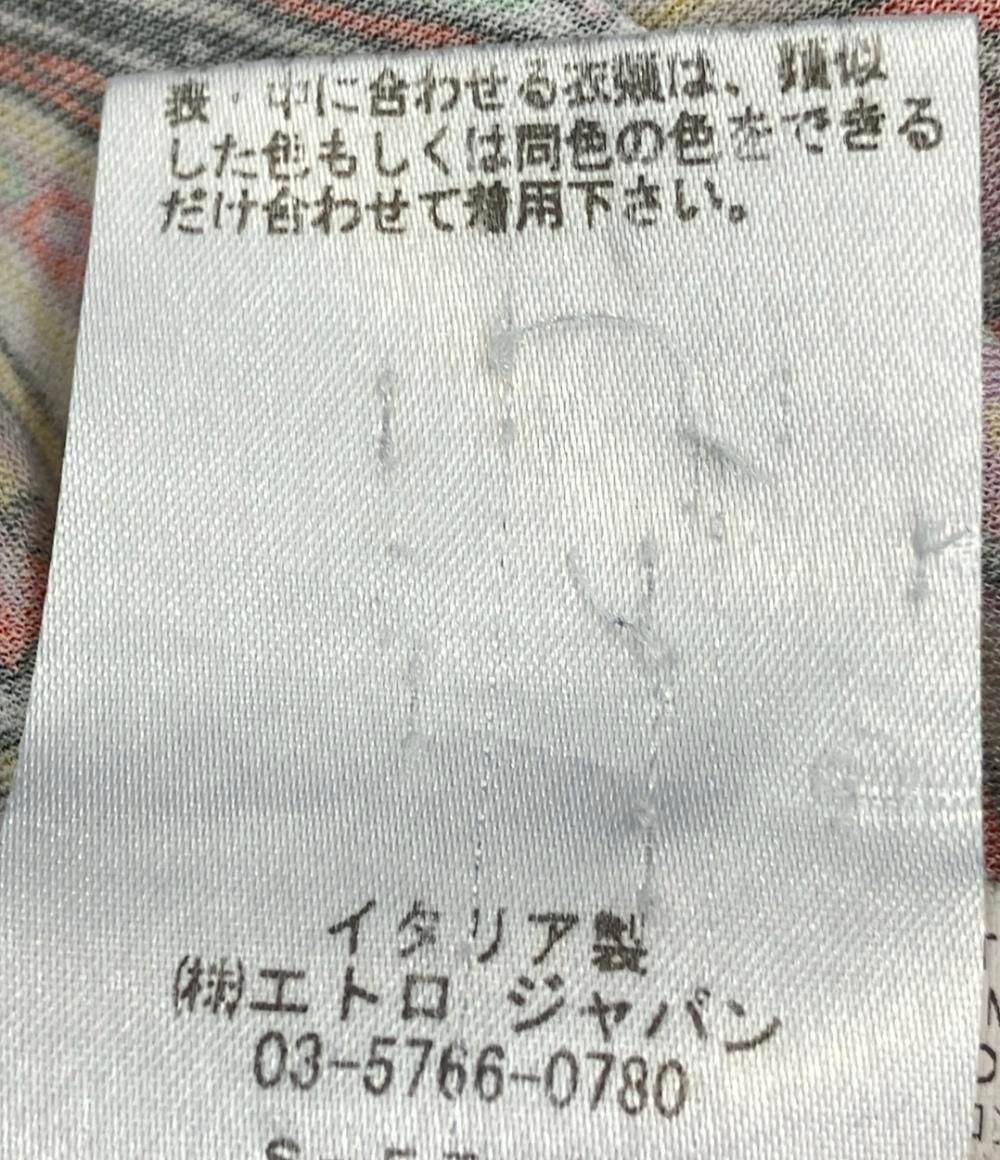 表・中に合わせる衣類は、類似
した色もしくは同色の色をできる
だけ合わせて着用下さい。
イタリア製
㈱エトロ ジャパン
03-5766-0780